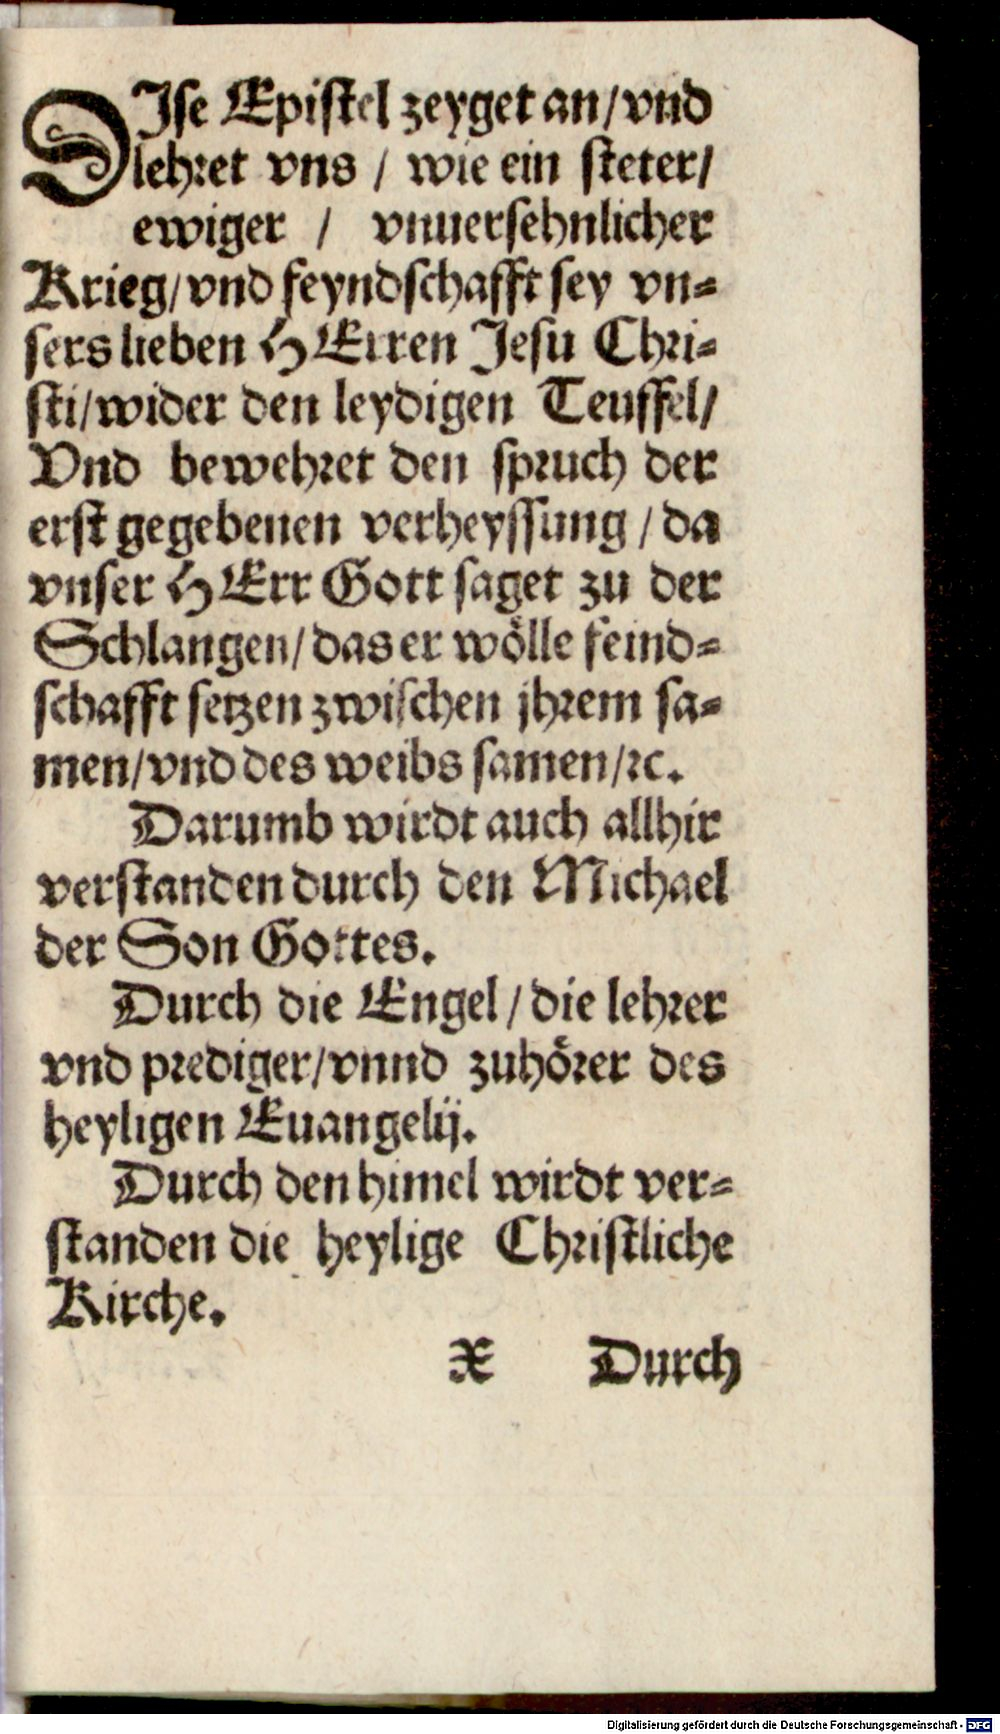 DIse Epistel zeyget an/vnd
lehret vns / wie ein steter/
ewiger / vnuersehnlicher
Krieg/vnd feyndschafft sey vn-
sers lieben HErren Jesu Chri-
sti/wider den leydigen Teuffel/
Vnd bewehret den spruch der
erst gegebenen verheyssung / da
vnser HErr Gott saget zu der
Schlangen/das er wölle feind-
schafft setzen zwischen jhrem sa-
men/vnd des weibs samen/ꝛc.
Darumb wirdt auch allhir
verstanden durch den Michael
der Son Gottes.
Durch die Engel / die lehrer
vnd prediger/vnnd zuhörer des
heyligen Euangelij.
Durch den himel wirdt ver-
standen die heylige Christliche
Kirche.
X Durch
Digitalisierung gefördert durch die Deutsche Forschungsgemeinschaft - DFG